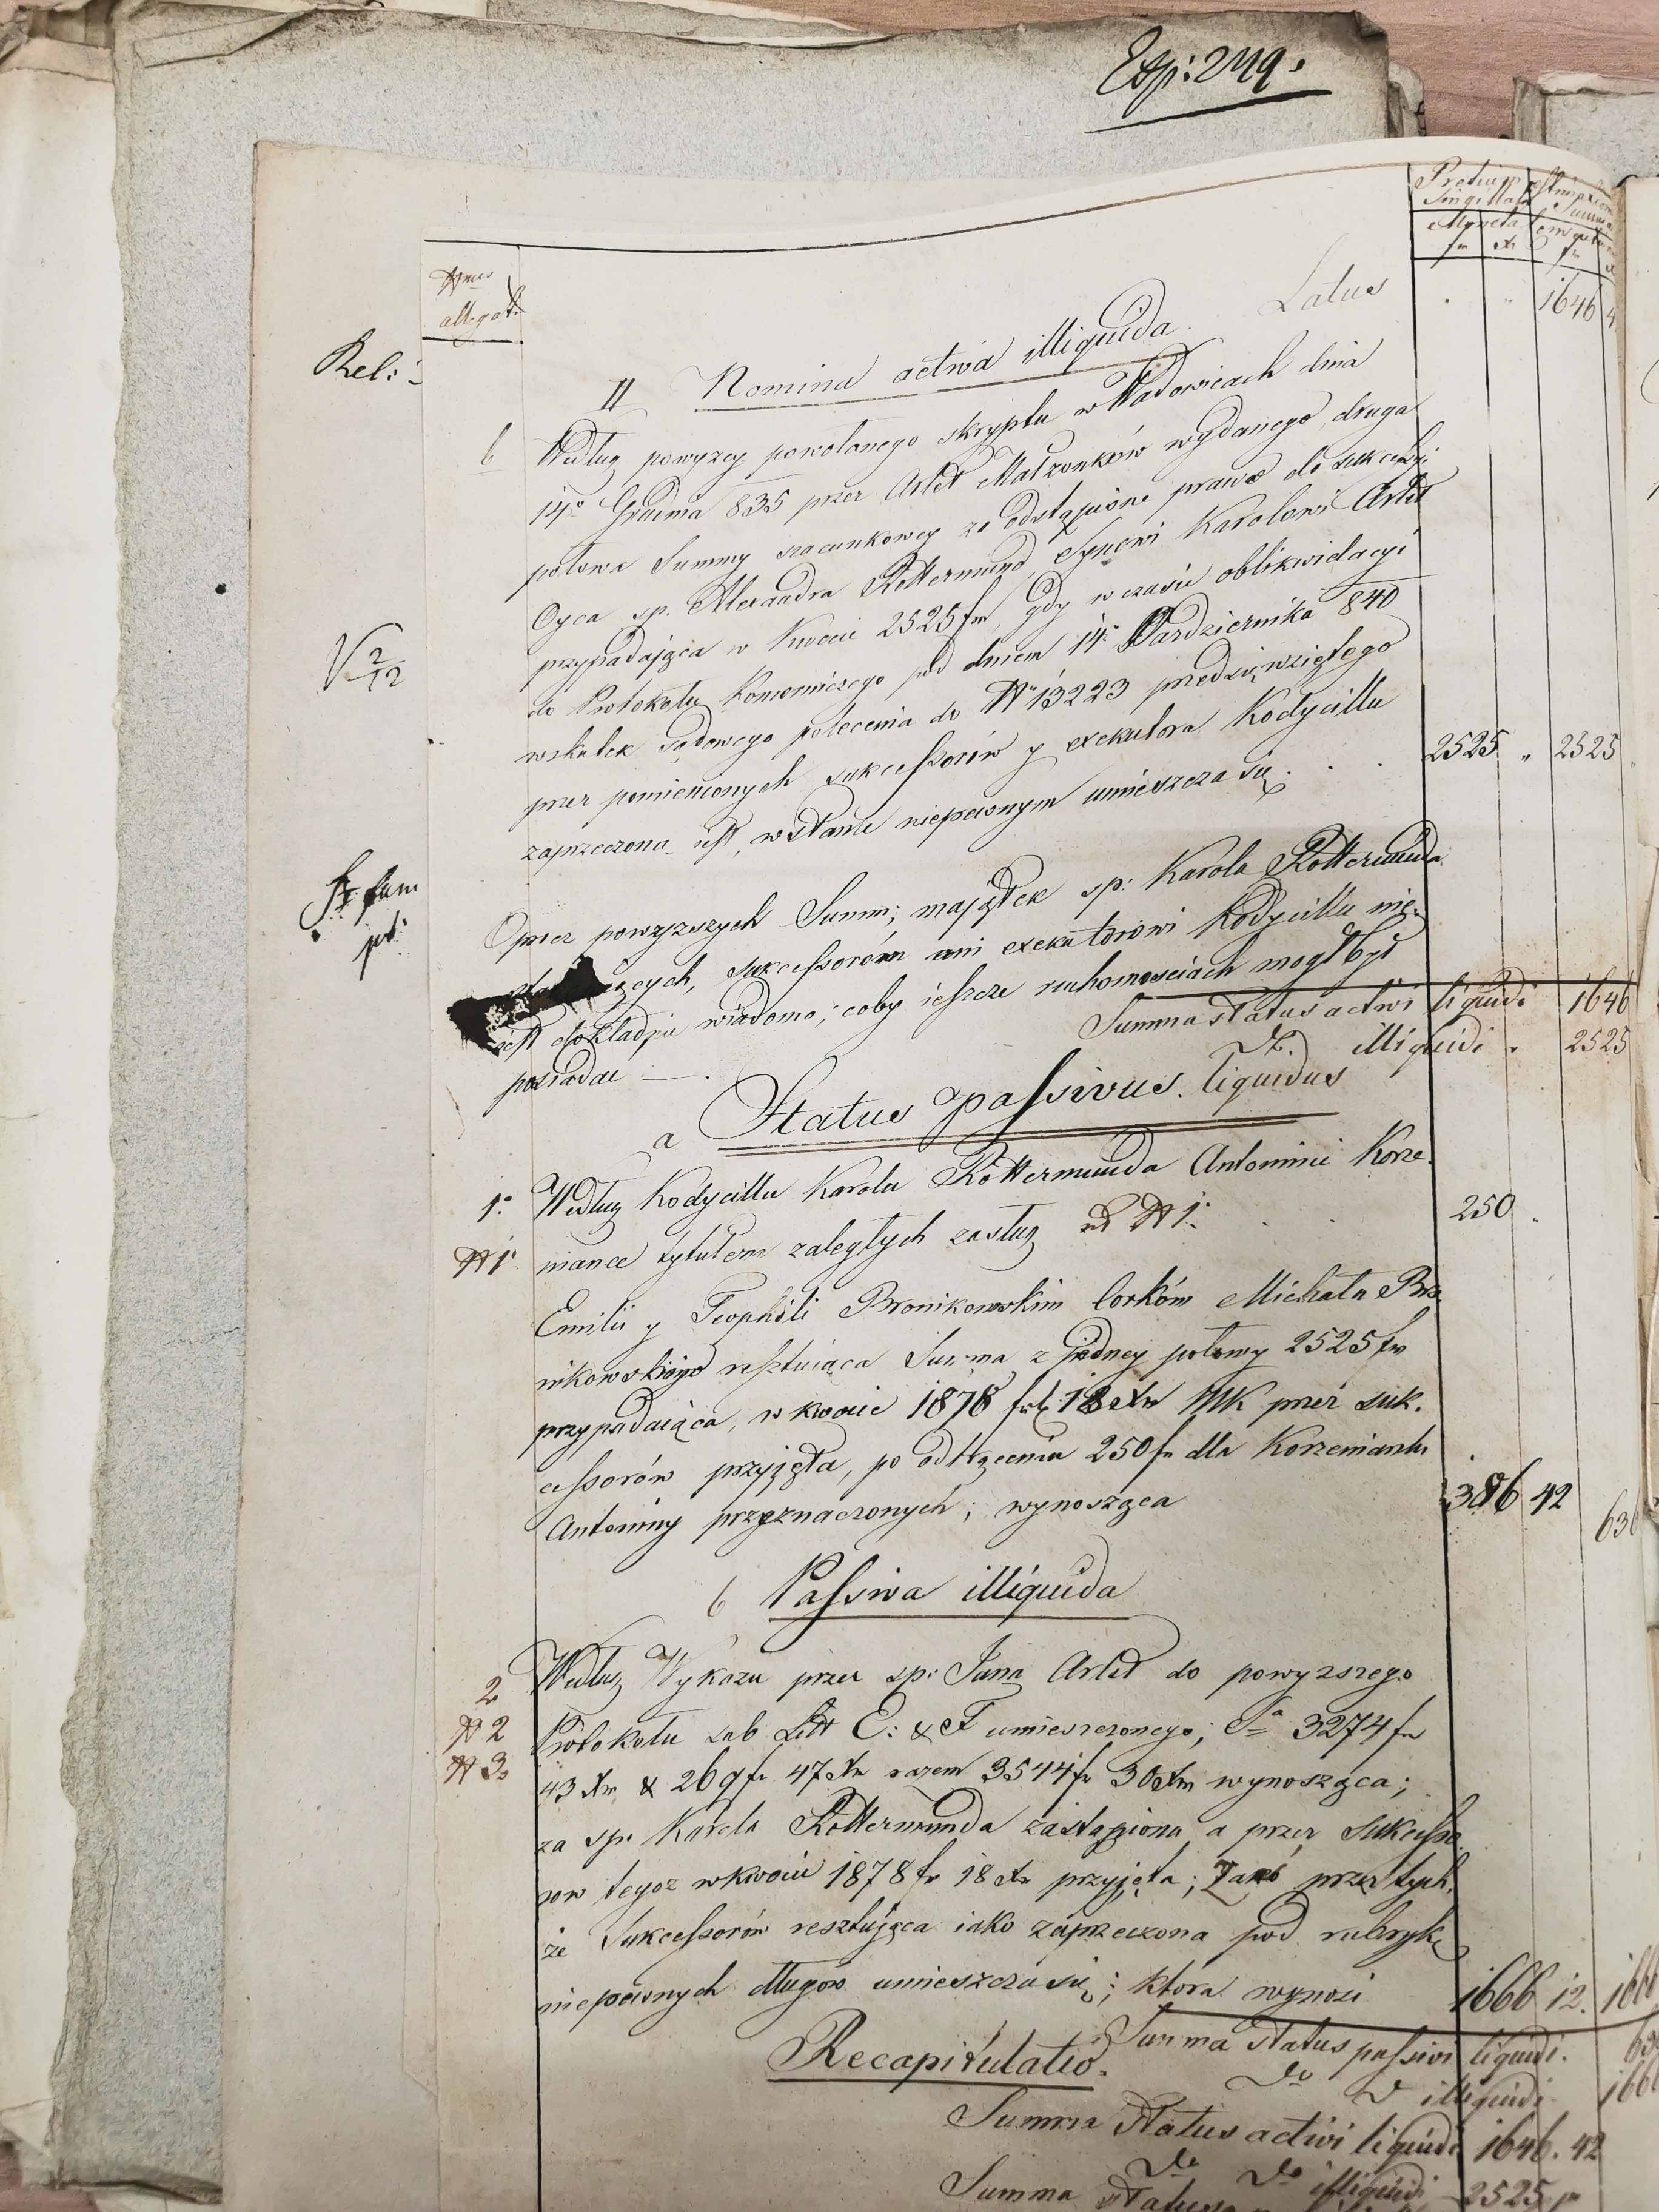 Exp: 249.
Pretium
Singillare
Moneta Conv
fr xr fr
Nrus
allegat
Latus 1646
Rel:
II Nomina activa illiquida
b Według powyzey powołanego skryptu w Wadowicach dnia
14o Grudnia 835 przez Artet Małżonków wydanego, druga
połowa Summy szacunkowey za odstąpione prawo do sukcessyi
Oyca sp. Alexandra Rottermund Synowi Karolowi Artet
przypadająca w kwocie 2525 fr, gdy w czasie oblikwidacyi
V 2/12
do Protokołu Komorniczego pod dniem 14o Pazdziernika 840
wskutek sądowego polecenia do N 13223 przedsięwziętego
przez pomienionych sukcessorów y exekutora Kodycillu
zaprzeczona iest, w stanie niepewnym umieszcza się . . . 2525 „ 2525
Oprocz powyzszych Summ, majątek sp: Karola Rottermunda
cych, sukcessorom ani exekutorowi Kodycillu nie
iest dokładnie wiadomo; coby ieszcze ruchomosciach mogł był
posiadac —.
Summa status activi liquidi 1646
illiquidi . 2525
a Status passivus liquidus
1o Według Kodycillu Karola Rottermunda Antoninie Korze-
N 1o niance tytułem zaległych zasług ad N 1o . . 250 .
Emilii y Teophili Bronikowskim Corkóm Michała Bro
nikowskiego resztuiąca Summa z jedney połowy 2525 fr
przypadaiąca, w kwocie 1878 fr 18 xr MK przez suk-
cessorów przyjęta, po odtrąceniu 250 fr dla Korzenianki
Antoniny przeznaczonych; wynosząca 386 42
b Passiva illiquida
2 Według Wykazu przez sp: Jana Artet do powyzszego
N 2 Protokołu sub Litt E: & F umieszczonego; Sa 3274 fr
N 3 43 xr & 269 fr 47 xr razem 3544 fr 30 xr wynosząca;
za sp: Karola Rottermunda zastąpiona a przez Sukcesso
row tegoz w kwocie 1878 fr 18 xr przyjęta; przez tych-
że Sukcessorów resztująca iako zaprzeczona pod rubrykę
niepewnych długow umieszcza się; ktora wynosi 1666 12.
Summa status passivi liquidi.
Do illiquidi
Recapitulatio.
Summa Status activi liquidi 1646. 42
Do Do illiquidi 2525
Summa Status